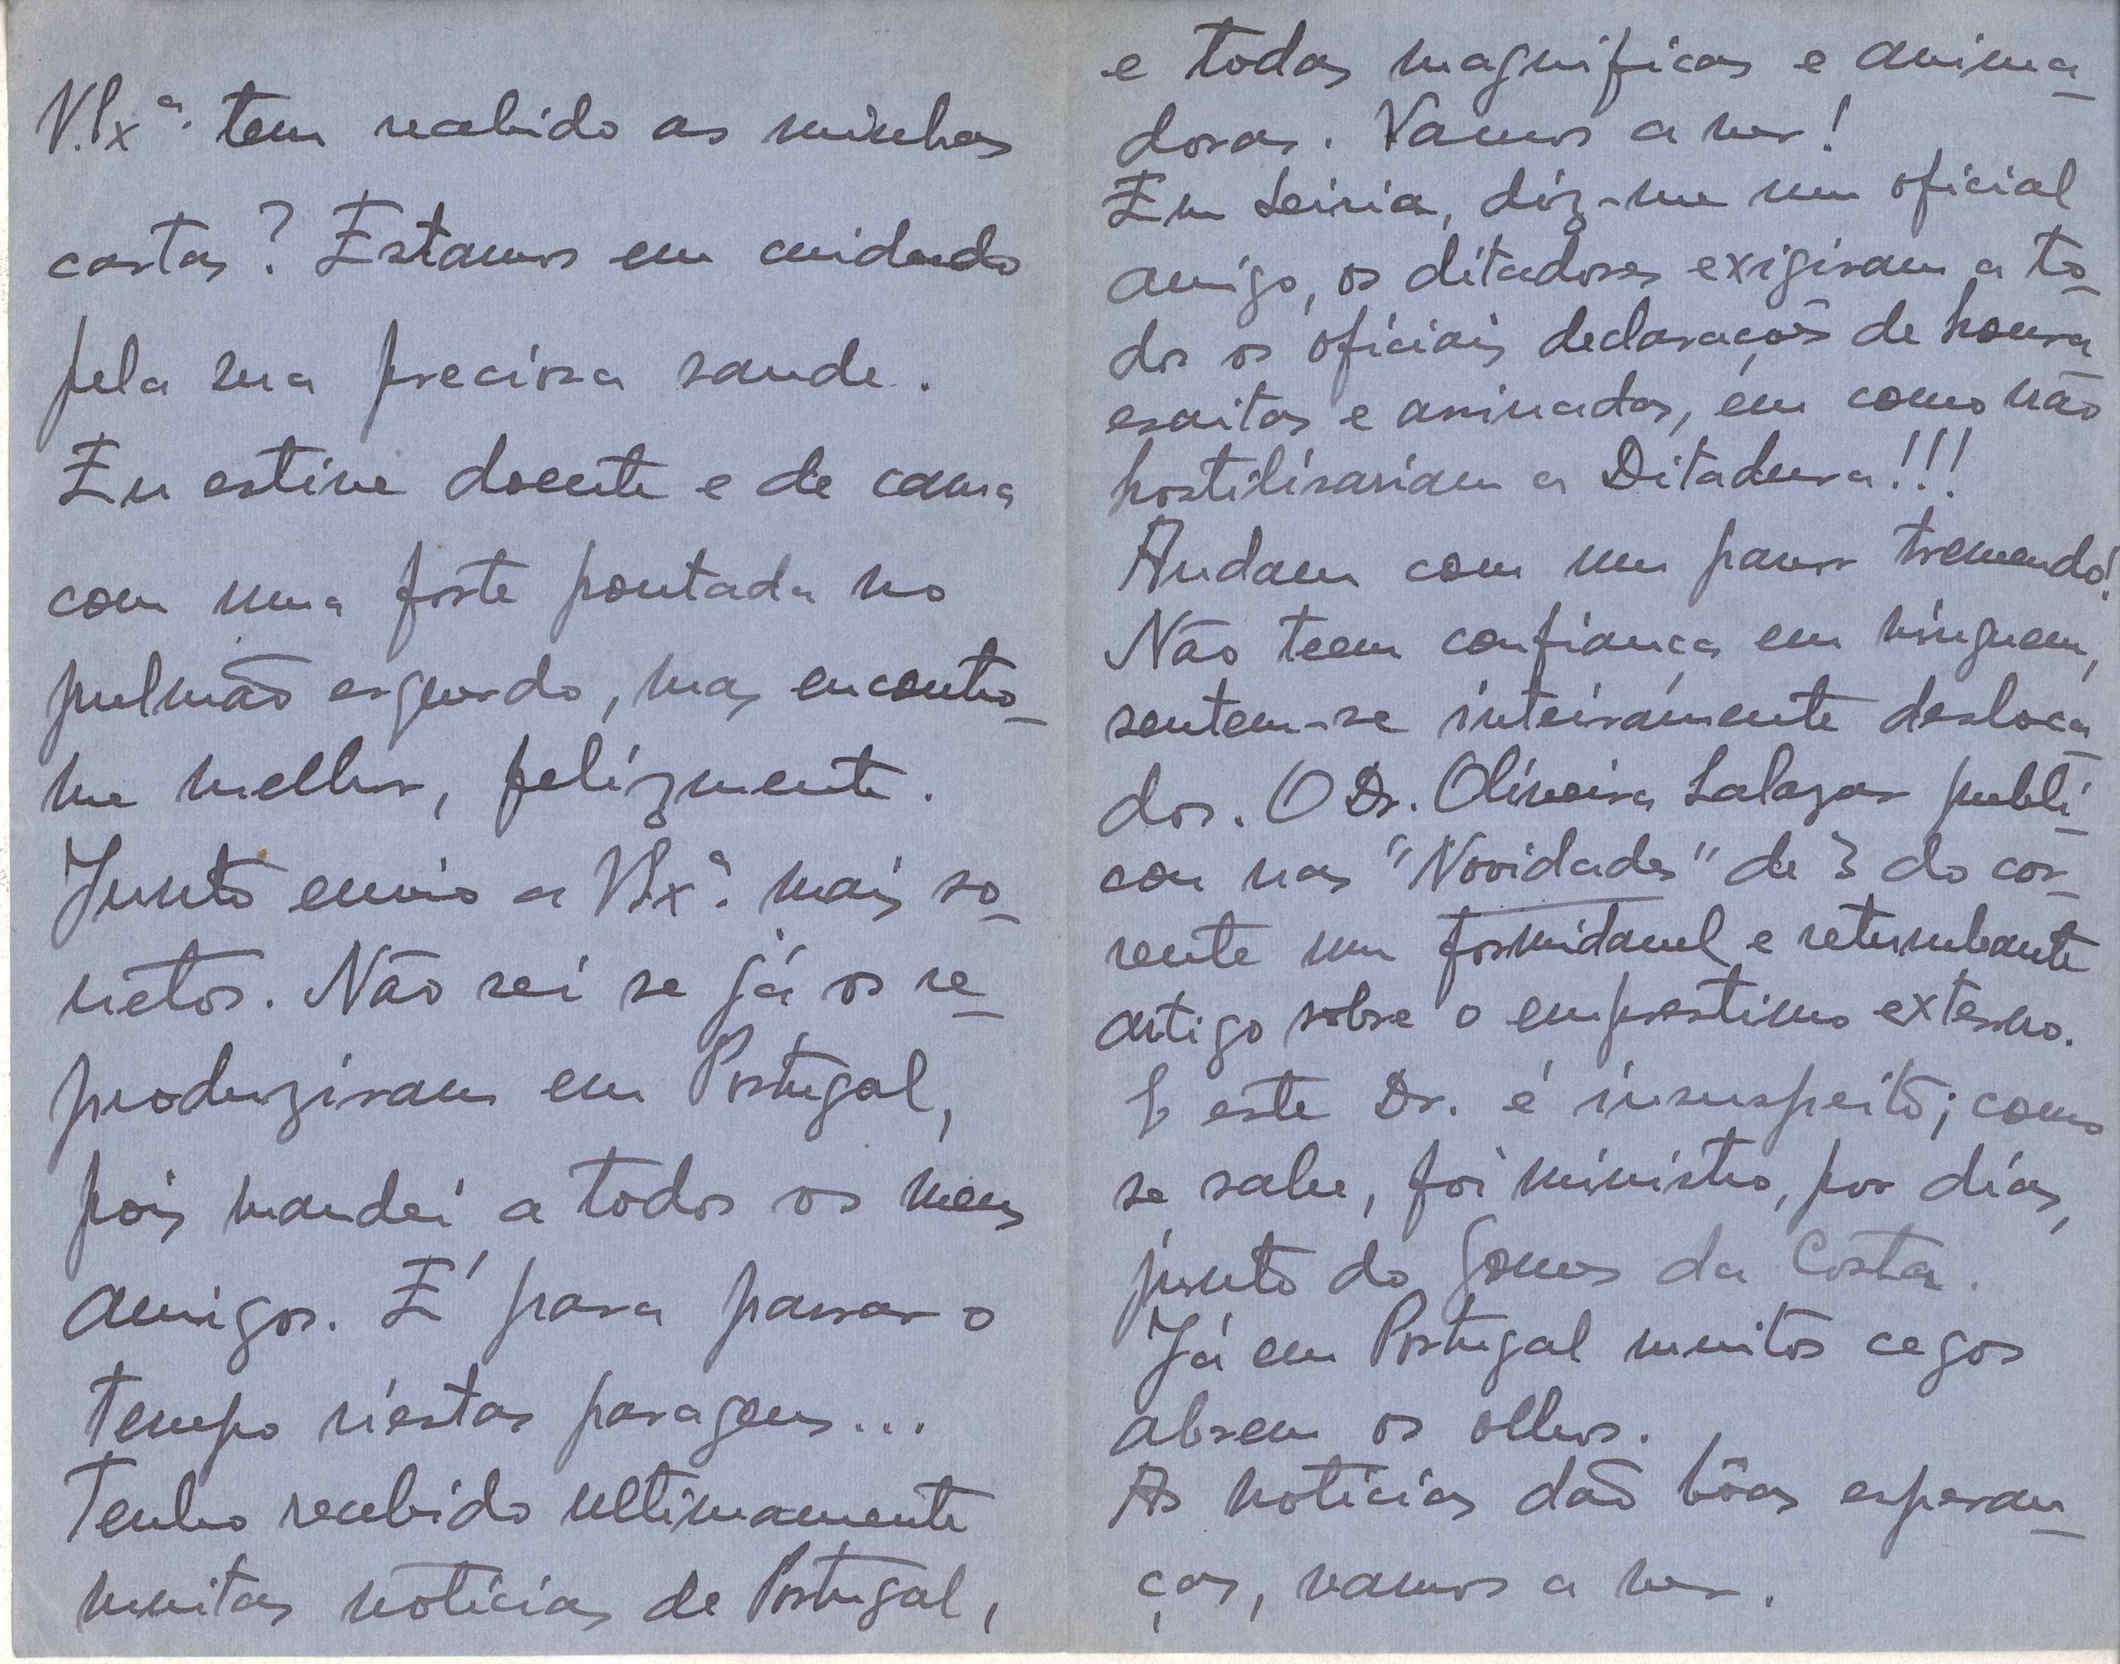 V. Exª. tem recebido as minhas
cartas? Estamos em cuidado
pela sua preciosa saude.
Eu estive doente e de cama
com uma forte pontada no
pulmão esquerdo, mas encontro-
me melhor, felizmente.
Junto envio a V. Exª. mais so-
netos. Não sei se já os re-
produziram em Portugal,
pois mandei a todos os meus
amigos. É para passar o
tempo n'estas paragens...
Tenho recebido ultimamente
muitas noticias de Portugal,
e todas magnificas e anima-
doras. Vamos a ver!
Em Leiria, diz-me um oficial
amigo, os ditadores exigiram a to-
dos os oficiais declarações de honra
escritas e assinadas, em como não
hostilisariam a Ditadura!!!
Andam com um pavor tremendo!
Não teem confiança em ninguem,
sentem-se inteiramente desloca-
dos. O Dr. Oliveira Salazar publi-
cou nas "Novidades" de 3 do cor-
rente um formidavel e retumbante
artigo sobre o emprestimo externo.
E este Dr. é insuspeito; como
se sabe, foi ministro, por dias,
junto do Gomes da Costa.
Já em Portugal muitos cegos
abrem os olhos.
As noticias dão bôas esperan-
ças, vamos a ver.